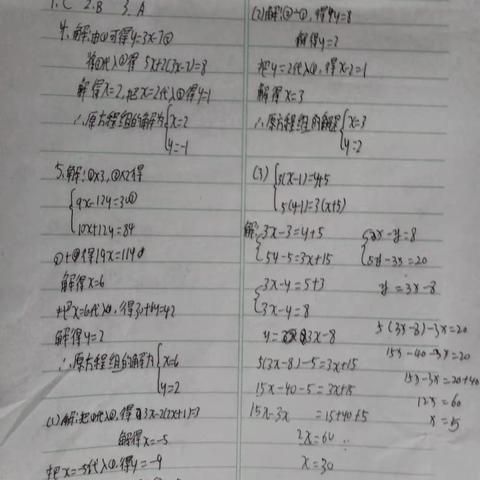 1.C 2.B 3.A
4.解:由①可得y=3x-7③
将③代入②得 5x+2(3x-7)=8
解得x=2,把x=2代入③得y=1
∴原方程组的解为{x=2
y=-1
5.解:①x3,②x2得
{9x-12y=30③
10x+12y=84
③+④得19x=114
解得x=6
把x=6代入②,得30+6y=42
解得y=2
∴原方程组的解为{x=6
y=2
(1)解:把①代入②,得3x-2(2x+1)=3
解得x=-5
把x=-5代入①,得y=-9
(2)解:②-①,得4y=8
解得y=2
把y=2代入①,得x-2=1
解得x=3
∴原方程组的解是{x=3
y=2
(3){3(x-1)=y+5
5(y-1)=3(x+5)
解:{3x-3=y+5
5y-5=3x+15
{3x-y=5+3
3x-y=8
y=3x-8
5(3x-8)-5=3x+15
15x-40-5=3x+15
15x-3x =15+40+5
2x=60
x=30
{3x-y=8
5y-3x=20
y=3x-8
5(3x-8)-3x=20
15x-40-3x=20
15x-3x=20+40
12x=60
x=5